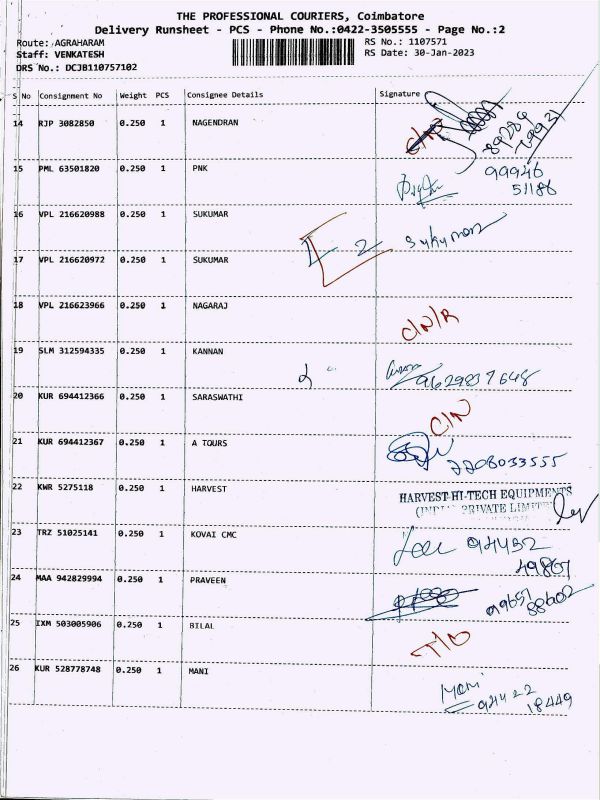 THE PROFESSIONAL COURIERS, Coimbatore
Delivery Runsheet - PCS - Phone No.:0422-3505555 - Page No.:2
Route: AGRAHARAM
RS No.: 1107571
Staff: VENKATESH
RS Date: 30-Jan-2023
DRS No.: DCJB110757102
S No Consignment No Weight PCS Consignee Details Signature
14 RJP 3082850 0.250 1 NAGENDRAN
15 PML 63501820 0.250 1 PNK 99946
51186
16 VPL 216620988 0.250 1 SUKUMAR
2 Sukumar
17 VPL 216620972 0.250 1 SUKUMAR
18 VPL 216623966 0.250 1 NAGARAJ C/N/R
19 SLM 312594335 0.250 1 KANNAN
9629837648
20 KUR 694412366 0.250 1 SARASWATHI C/N
21 KUR 694412367 0.250 1 A TOURS
2208033555
22 KWR 5275118 0.250 1 HARVEST HARVEST HI-TECH EQUIPMENTS
PRIVATE LIMIT
23 TRZ 51025141 0.250 1 KOVAI CMC 94452
49867
24 MAA 942829994 0.250 1 PRAVEEN
25 IXM 503005906 0.250 1 BILAL T/O
26 KUR 528778748 0.250 1 MANI Mani
94422
18449